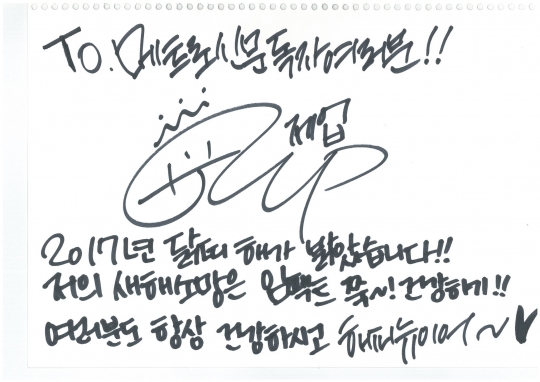 To. 메트로신문 독자여러분!!
제업
2017년 닭띠 해가 밝았습니다!!
저의 새해소망은 임팩트 쭉~! 건강하기!!
여러분도 항상 건강하시고 해피뉴이어~♥